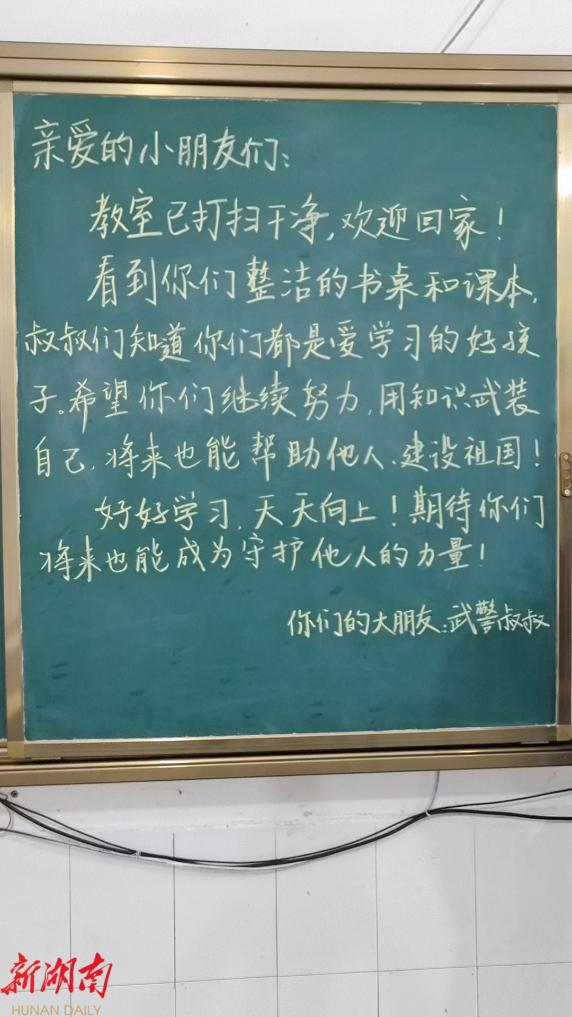 亲爱的小朋友们：
教室已打扫干净，欢迎回家！
看到你们整洁的书桌和课本，
叔叔们知道你们都是爱学习的好孩
子。希望你们继续努力，用知识武装
自己，将来也能帮助他人、建设祖国！
好好学习，天天向上！期待你们
将来也能成为守护他人的力量！
你们的大朋友：武警叔叔
新湖南
HUNAN DAILY